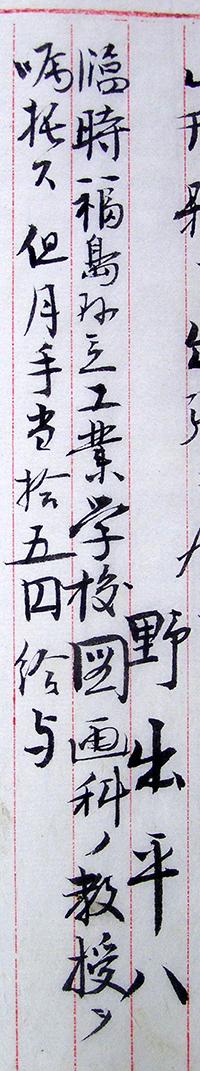 野出平八
臨時福島県立工業学校図画科ノ教授ヲ
嘱托ス但月手当拾五円給与